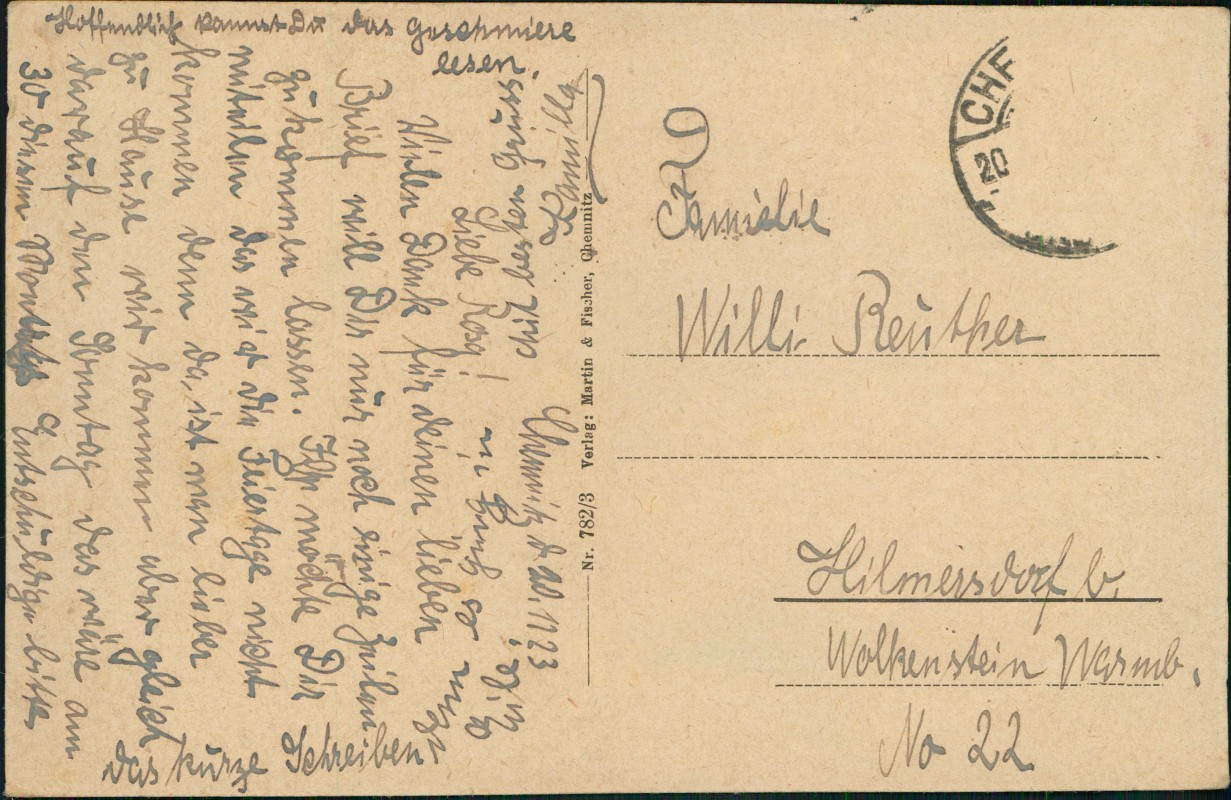 Chemnitz d 20.11.23
Liebe Rosa!
Vielen Dank für deinen lieben
Brief will Dir nur noch einige Zeilen
zukommen lassen. Ich möchte Dir
mitteilen das wir die Feiertage nicht
kommen denn da ist man lieber
zu Hause wir kommen aber gleich
darauf den Sonntag das wäre am
30 diesen Entschuldige bitte
das kurze Schreiben
besten Gruss
Kamilla
Hoffendlich kannst Du das Geschmiere
lesen.
Nr. 782/3 Verlag: Martin & Fischer, Chemnitz
CHE
20
Familie
Willi Reuther
Hilmersdorf b.
Wolkenstein Warmb.
No 22